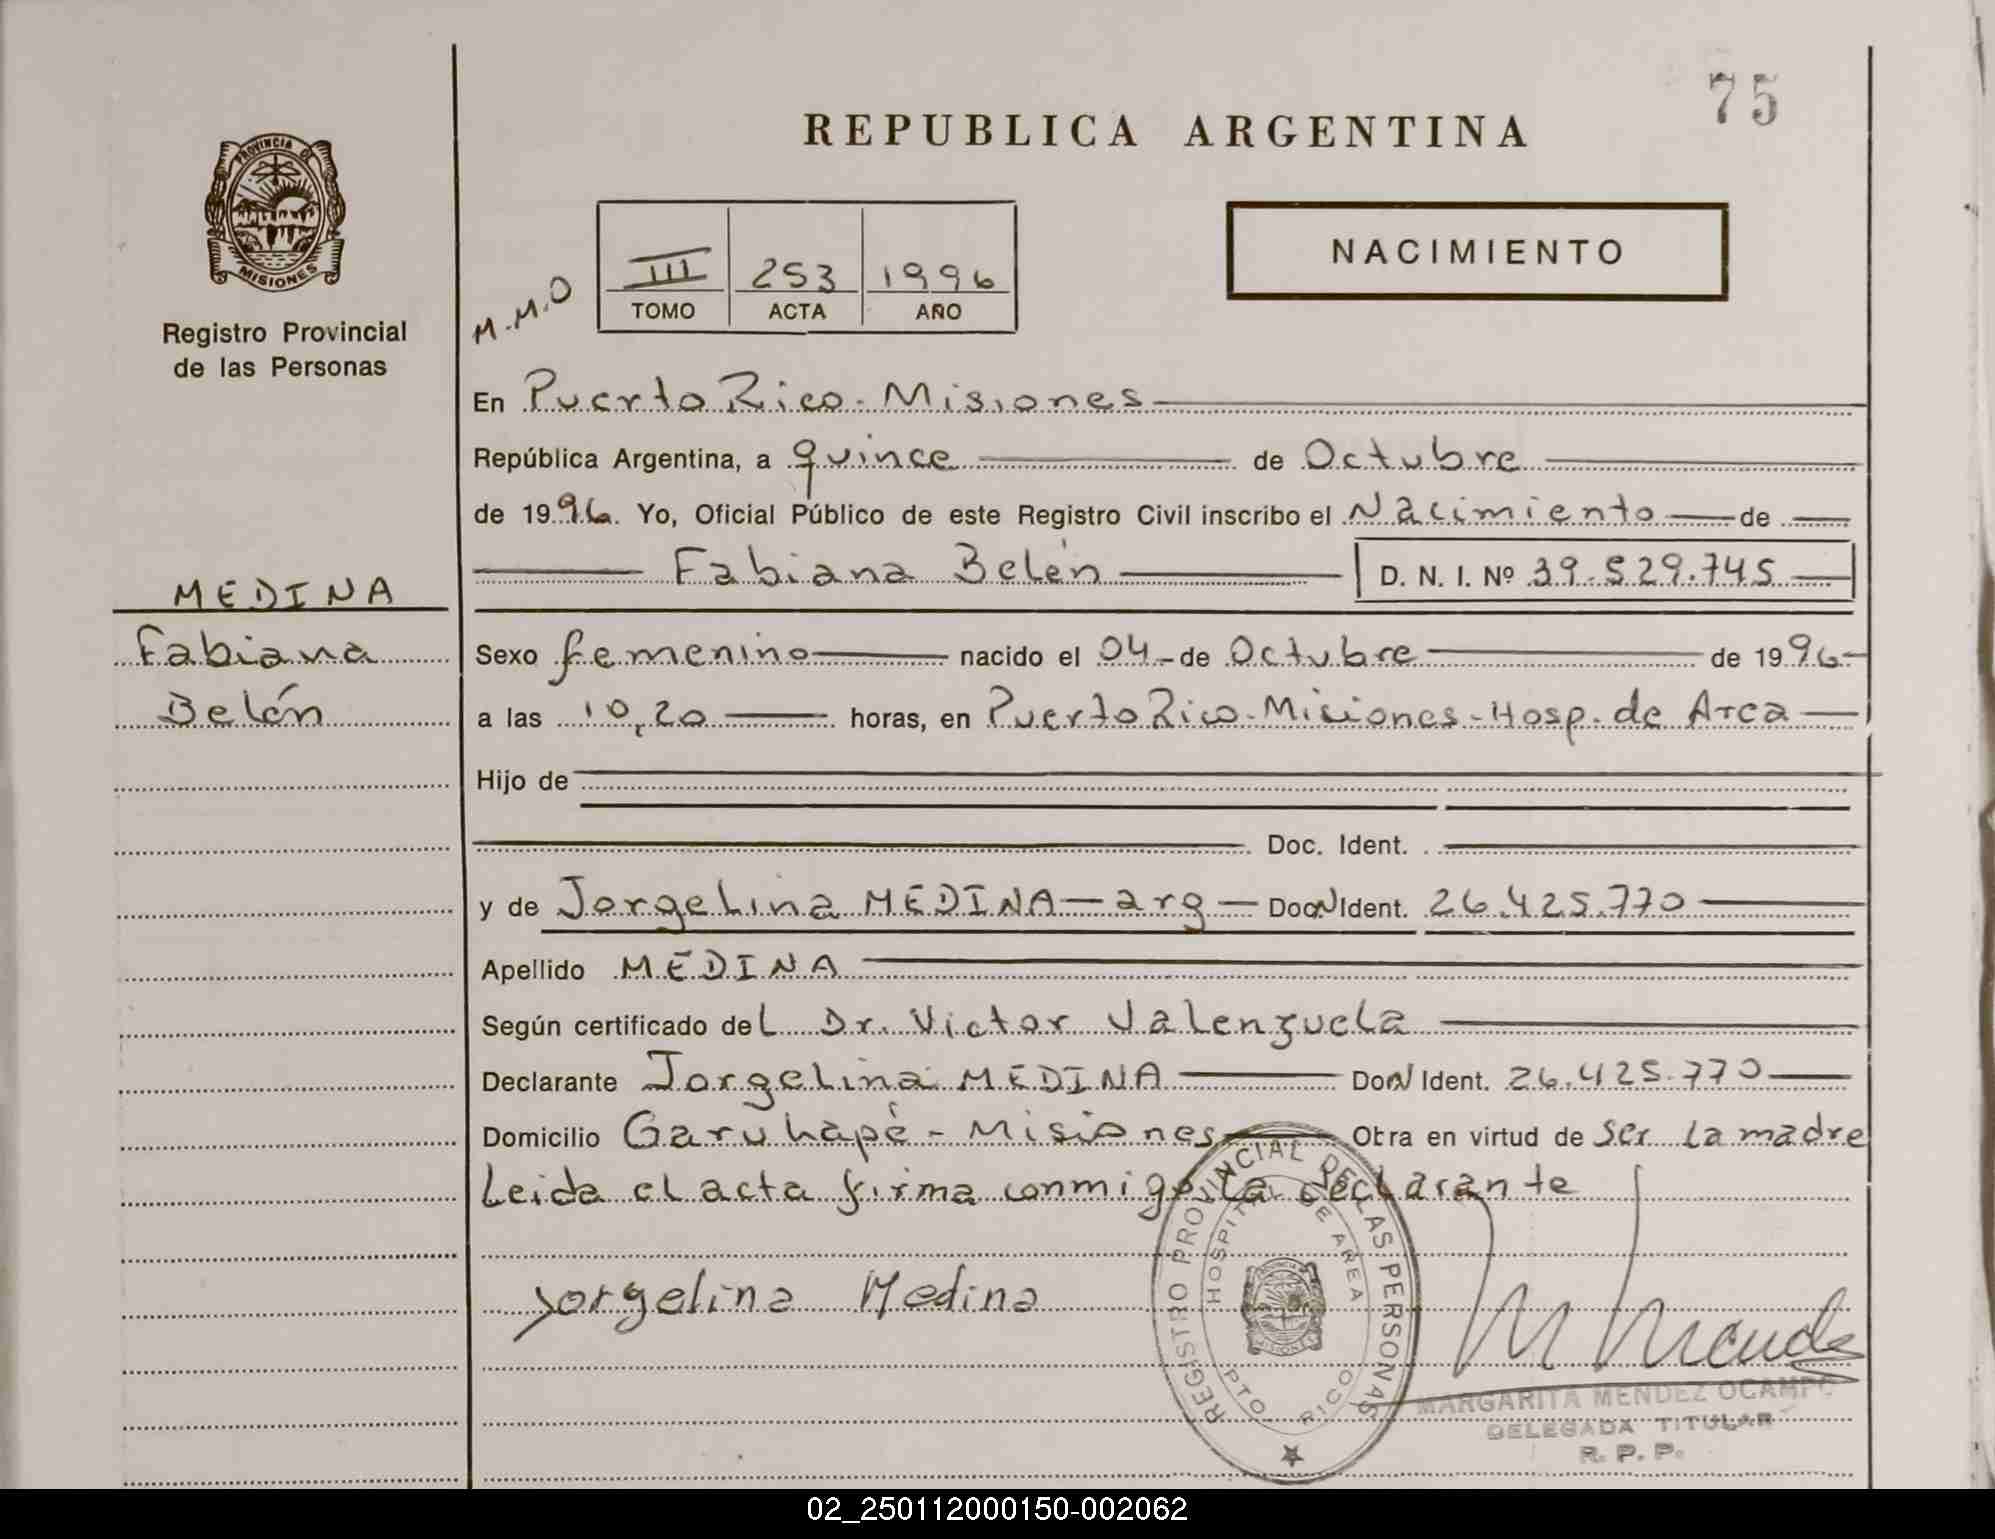 75
REPUBLICA ARGENTINA
PROVINCIA DE
MISIONES
Registro Provincial
de las Personas
M.M.O
III 253 1996
TOMO ACTA AÑO
NACIMIENTO
En Puerto Rico - Misiones
República Argentina, a quince de Octubre
de 1996. Yo, Oficial Público de este Registro Civil inscribo el Nacimiento de
Fabiana Belén D. N. I. Nº 39.529.745
MEDINA
Fabiana
Belén
Sexo femenino nacido el 04 de Octubre de 1996
a las 10,20 horas, en Puerto Rico - Misiones - Hosp. de Area
Hijo de
Doc. Ident.
y de Jorgelina MEDINA - arg - Doc. Ident. 26.425.770
Apellido MEDINA
Según certificado del Dr. Victor Valenzuela
Declarante Jorgelina MEDINA Doc. Ident. 26.425.770
Domicilio Garuhapé - Misiones Obra en virtud de ser la madre
Leida el acta firma conmigo la declarante
Jorgelina Medina
REGISTRO PROVINCIAL DE LAS PERSONAS
HOSPITAL DE AREA
MISIONES
PTO. RICO
MARGARITA MENDEZ OCAMPO
DELEGADA TITULAR
R. P. P.
02_250112000150-002062